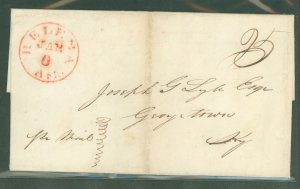 HELENA
JAN
6
Ark.
25
Joseph G Lyle Esqr
Georgetown
pr Mail
Ky